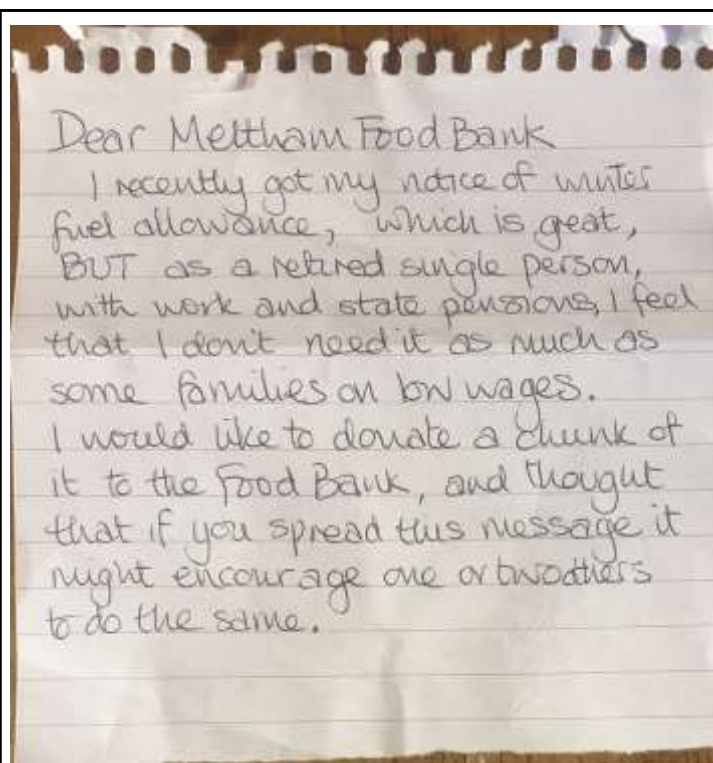 Dear Meltham Food Bank
I recently got my notice of winter
fuel allowance, which is great,
BUT as a retired single person,
with work and state pensions, I feel
that I don't need it as much as
some families on low wages.
I would like to donate a chunk of
it to the Food Bank, and thought
that if you spread this message it
might encourage one or two others
to do the same.